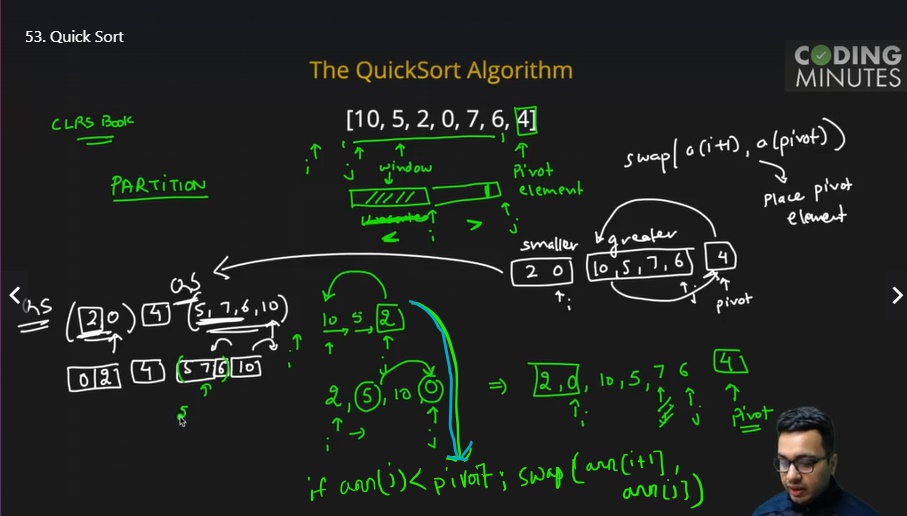 53. Quick Sort
CODING
MINUTES
The QuickSort Algorithm
CLRS Book
[10, 5, 2, 0, 7, 6, 4]
i
j
window
Pivot
element
swap(a(i+1), a(pivot))
Place pivot
element
PARTITION
<
i
>
j
smaller
greater
2 0
10, 5, 7, 6
4
i
j
pivot
qs
qs
(2 0) 4 (5, 7, 6, 10)
0 2 4 (5 7 6 10
5
10 5 2
i
j
2, 5, 10 0
i
j
⇒ 2, 0, 10, 5, 7 6 4
i
j
Pivot
if arr(j) < pivot ; swap(arr[i+1],
arr[j])